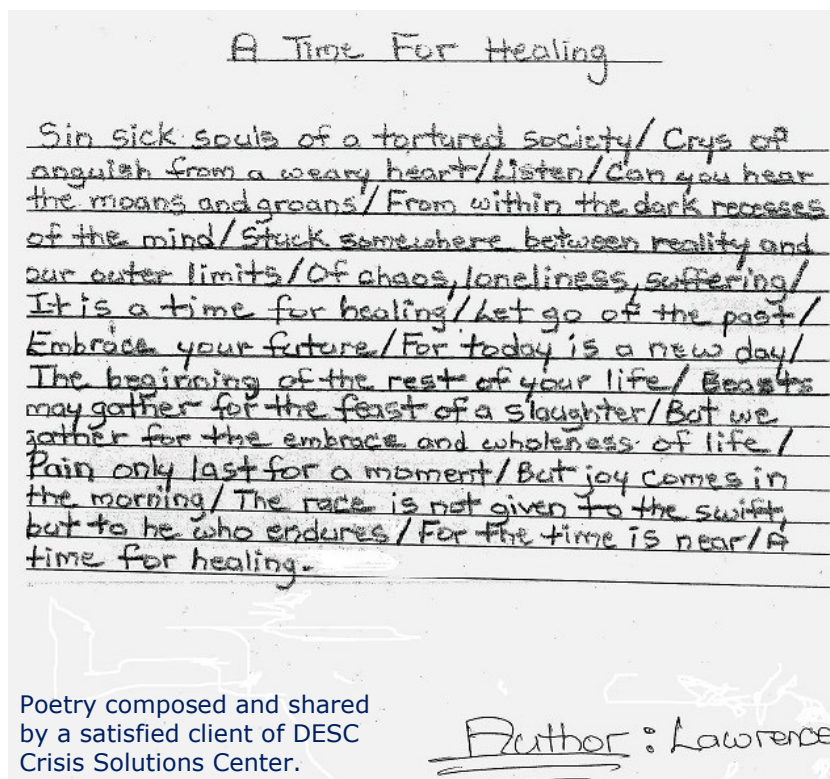 A Time For Healing
Sin sick souls of a tortured society/ Crys of
anguish from a weary heart/Listen/Can you hear
the moans and groans/From within the dark recesses
of the mind/Stuck somewhere between reality and
our outer limits/Of chaos, loneliness, suffering/
It is a time for healing/Let go of the past/
Embrace your future/For today is a new day/
The beginning of the rest of your life/ Beasts
may gather for the feast of a slaughter/But we
gather for the embrace and wholeness of life/
Pain only last for a moment/But joy comes in
the morning/ The race is not given to the swift,
but to he who endures/For the time is near/A
time for healing.
Poetry composed and shared
by a satisfied client of DESC
Crisis Solutions Center.
Author: Lawrence